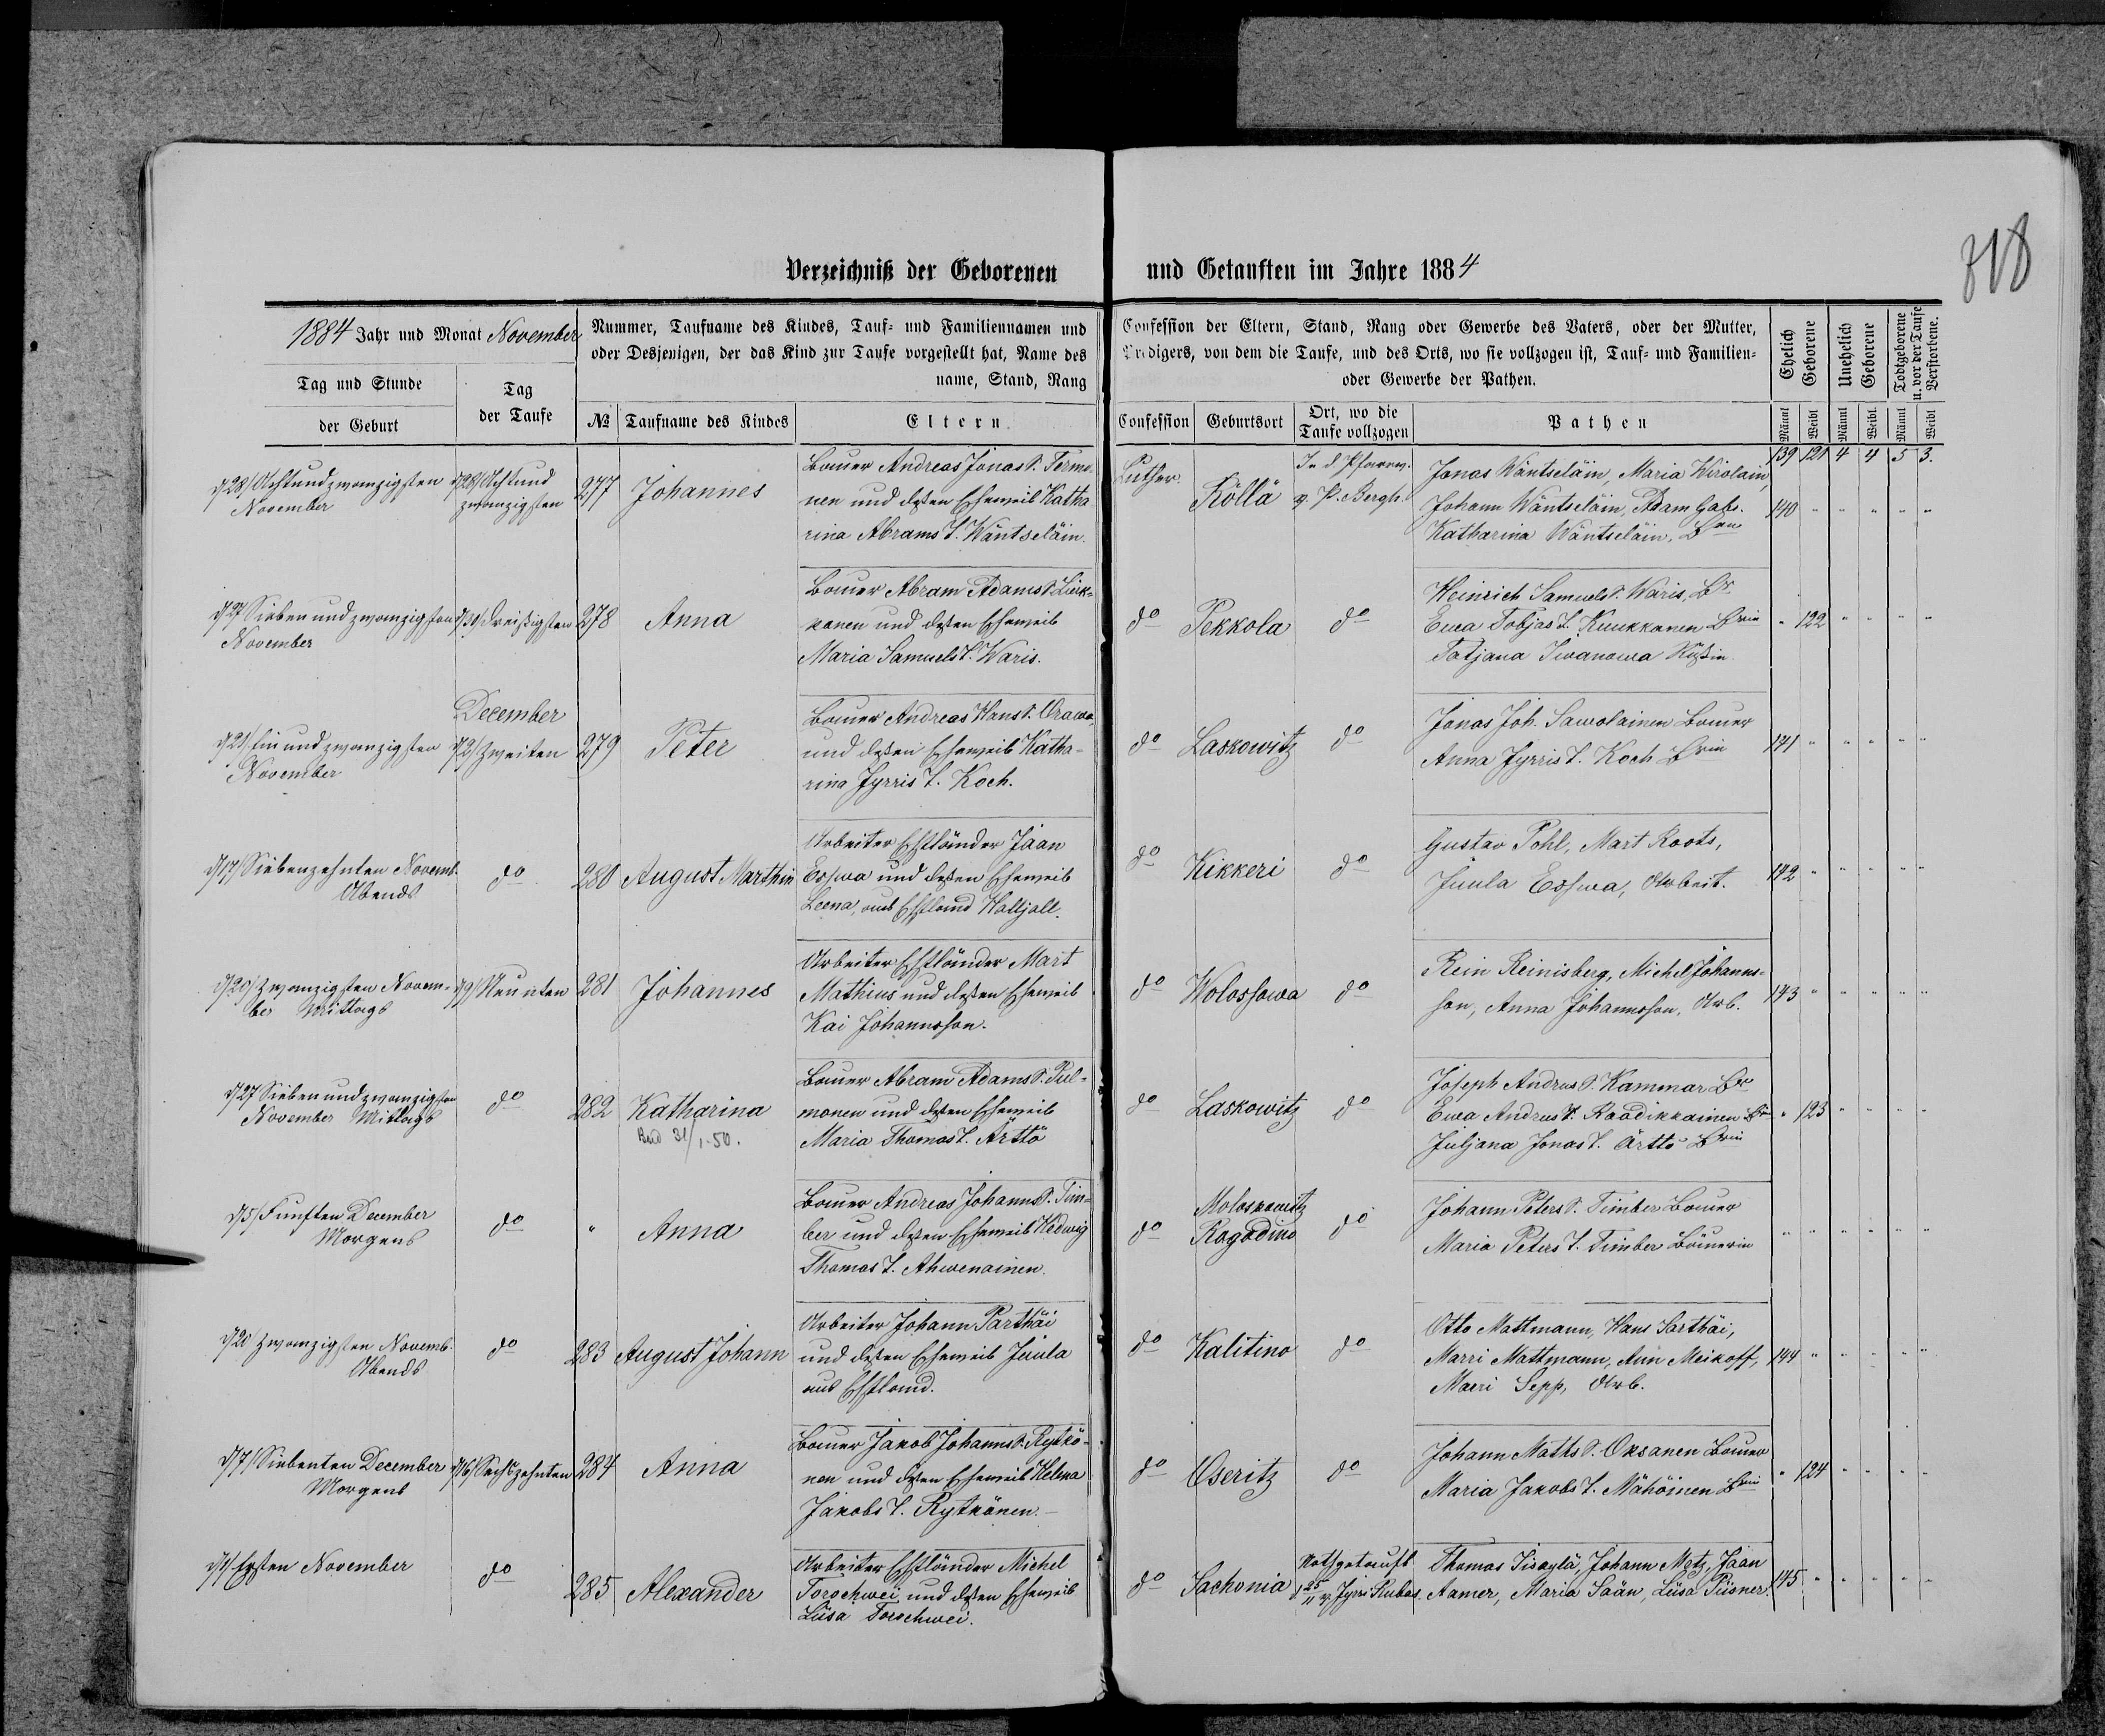 818
Verzeichniß der Geborenen und Getauften im Jahre 1884
1884 Jahr und Monat November
Nummer, Taufname des Kindes, Tauf- und Familiennamen und
oder Desjenigen, der das Kind zur Taufe vorgestellt hat, Name des
name, Stand, Rang
Confession der Eltern, Stand, Rang oder Gewerbe des Vaters, oder der Mutter,
Predigers, von dem die Taufe, und des Orts, wo sie vollzogen ist, Tauf- und Familien-
oder Gewerbe der Pathen.
Ehelich Geborene
Unehelich Geborene
Todtgeborene u. vor der Taufe Verstorbene.
Tag und Stunde
der Geburt
Tag
der Taufe
№ Taufname des Kindes Eltern
Confession Geburtsort Ort, wo die Taufe vollzogen Pathen
Männl Weibl Männl Weibl. Männl Weibl
139 121 4 4 5 3.
d/28/ Achtundzwanzigsten
November
d/28/ Achtund
zwanzigsten
277 Johannes
Bauer Andreas Jonas S. Termo-
nen und deßen Eheweib Katha
rina Abrams T. Wäntseläin.
Luther. Köllä
In d. Pfarrw.
v. P. Bergh.
Jonas Wäntseläin, Maria Wirolain,
Johann Wäntseläin, Adam Gabr.
Katharina Wäntseläin, Brn
140 " " " " "
d/27/ Siebenundzwanzigsten
November
d/30/ Dreißigsten
278 Anna
Bauer Abram Adams S. Liuk-
konen und deßen Eheweib
Maria Samuels T. Waris.
do Pekkola do
Heinrich Samuels S. Waris, Br
Ewa Tobjas T. Kuukkanen Brin
Tatjana Iwanowa Rußin
" 122 " " " "
d/21/ Ein und zwanzigsten
November
December
d/2/ Zweiten
279 Peter
Bauer Andreas Hans S. Orawa,
und deßen Eheweib Katha-
rina Jyrris T. Koch.
do Laskowitz do
Jonas Joh. Sawolainen Bauer
Anna Jyrris T. Koch Brin
141 " " " " "
d/17/ Siebenzehnten Novemb.
Abends
do
280 August Marthin
Arbeiter Ehstländer Jaan
Eshwa und deßen Eheweib
Leena, aus Ehstland Haljall.
do Kikkeri do
Gustav Pohl, Mart Roots,
Juula Eshwa, Arbeit.
142 " " " " "
d/20/ Zwanzigsten Novem-
ber Mittags
d/9/ Neunten
281 Johannes
Arbeiter Ehstländer Mart
Mathius und deßen Eheweib
Kai Johannsson.
do Wolossowa do
Rein Reinisberg, Michel Johanns-
son, Anna Johannsson, Arb.
143 " " " " "
d/27 Siebenundzwanzigsten
November Mittags
do
282 Katharina
31/1.50.
Bauer Abram Adams S. Pul-
monen und deßen Eheweib
Maria Thomas T. Ärttö
do Laskowitz do
Joseph Andreas S. Kammar Br
Ewa Andreas T. Raadikkainen Br
Juljana Jonas T. Ärttö Brin
" 123 " " " "
d/5/ Fünften December
Morgens
do
" Anna
Bauer Andreas Johanns S. Tim-
ber und deßen Eheweib Hedwig
Thomas T. Ahwenainen.
do
Moloskowitz
Ragodino
do
Johann Peters S. Timber Bauer
Maria Peters T. Timber Bäuerin
" " " " " "
d/20 Zwanzigsten Novemb.
Abends
do
283 August Johann
Arbeiter Johann Parthäi
und deßen Eheweib Juula
aus Ehstland.
do Kalitino do
Otto Mattmann, Hans Parthäi,
Marri Mattmann, Ann Meikoff,
Maeri Sepp, Arb.
144 " " " " "
d/7/ Siebenten December
Morgens
d/16/ Sechszehnten
284 Anna
Bauer Jakob Johanns S. Rytkö-
nen und deßen Eheweib Helena
Jakobs T. Rytkönen.
do Oseritz do
Johann Maths S. Oksanen Bauer
Maria Jakobs T. Mähöinen Brin
" 124 " " " "
d/1/ Ersten November
do
285 Alexander
Arbeiter Ehstländer Michel
Torschwei und deßen Eheweib
Liisa Torschwei.
do Sachonia
Nothgetauft
d. 25/11 v. Jyri Rubas.
Thomas Tisaylä, Johann Metz, Jaan
Aamer, Maria Saän, Liisa Piisner.
145 " " " " "